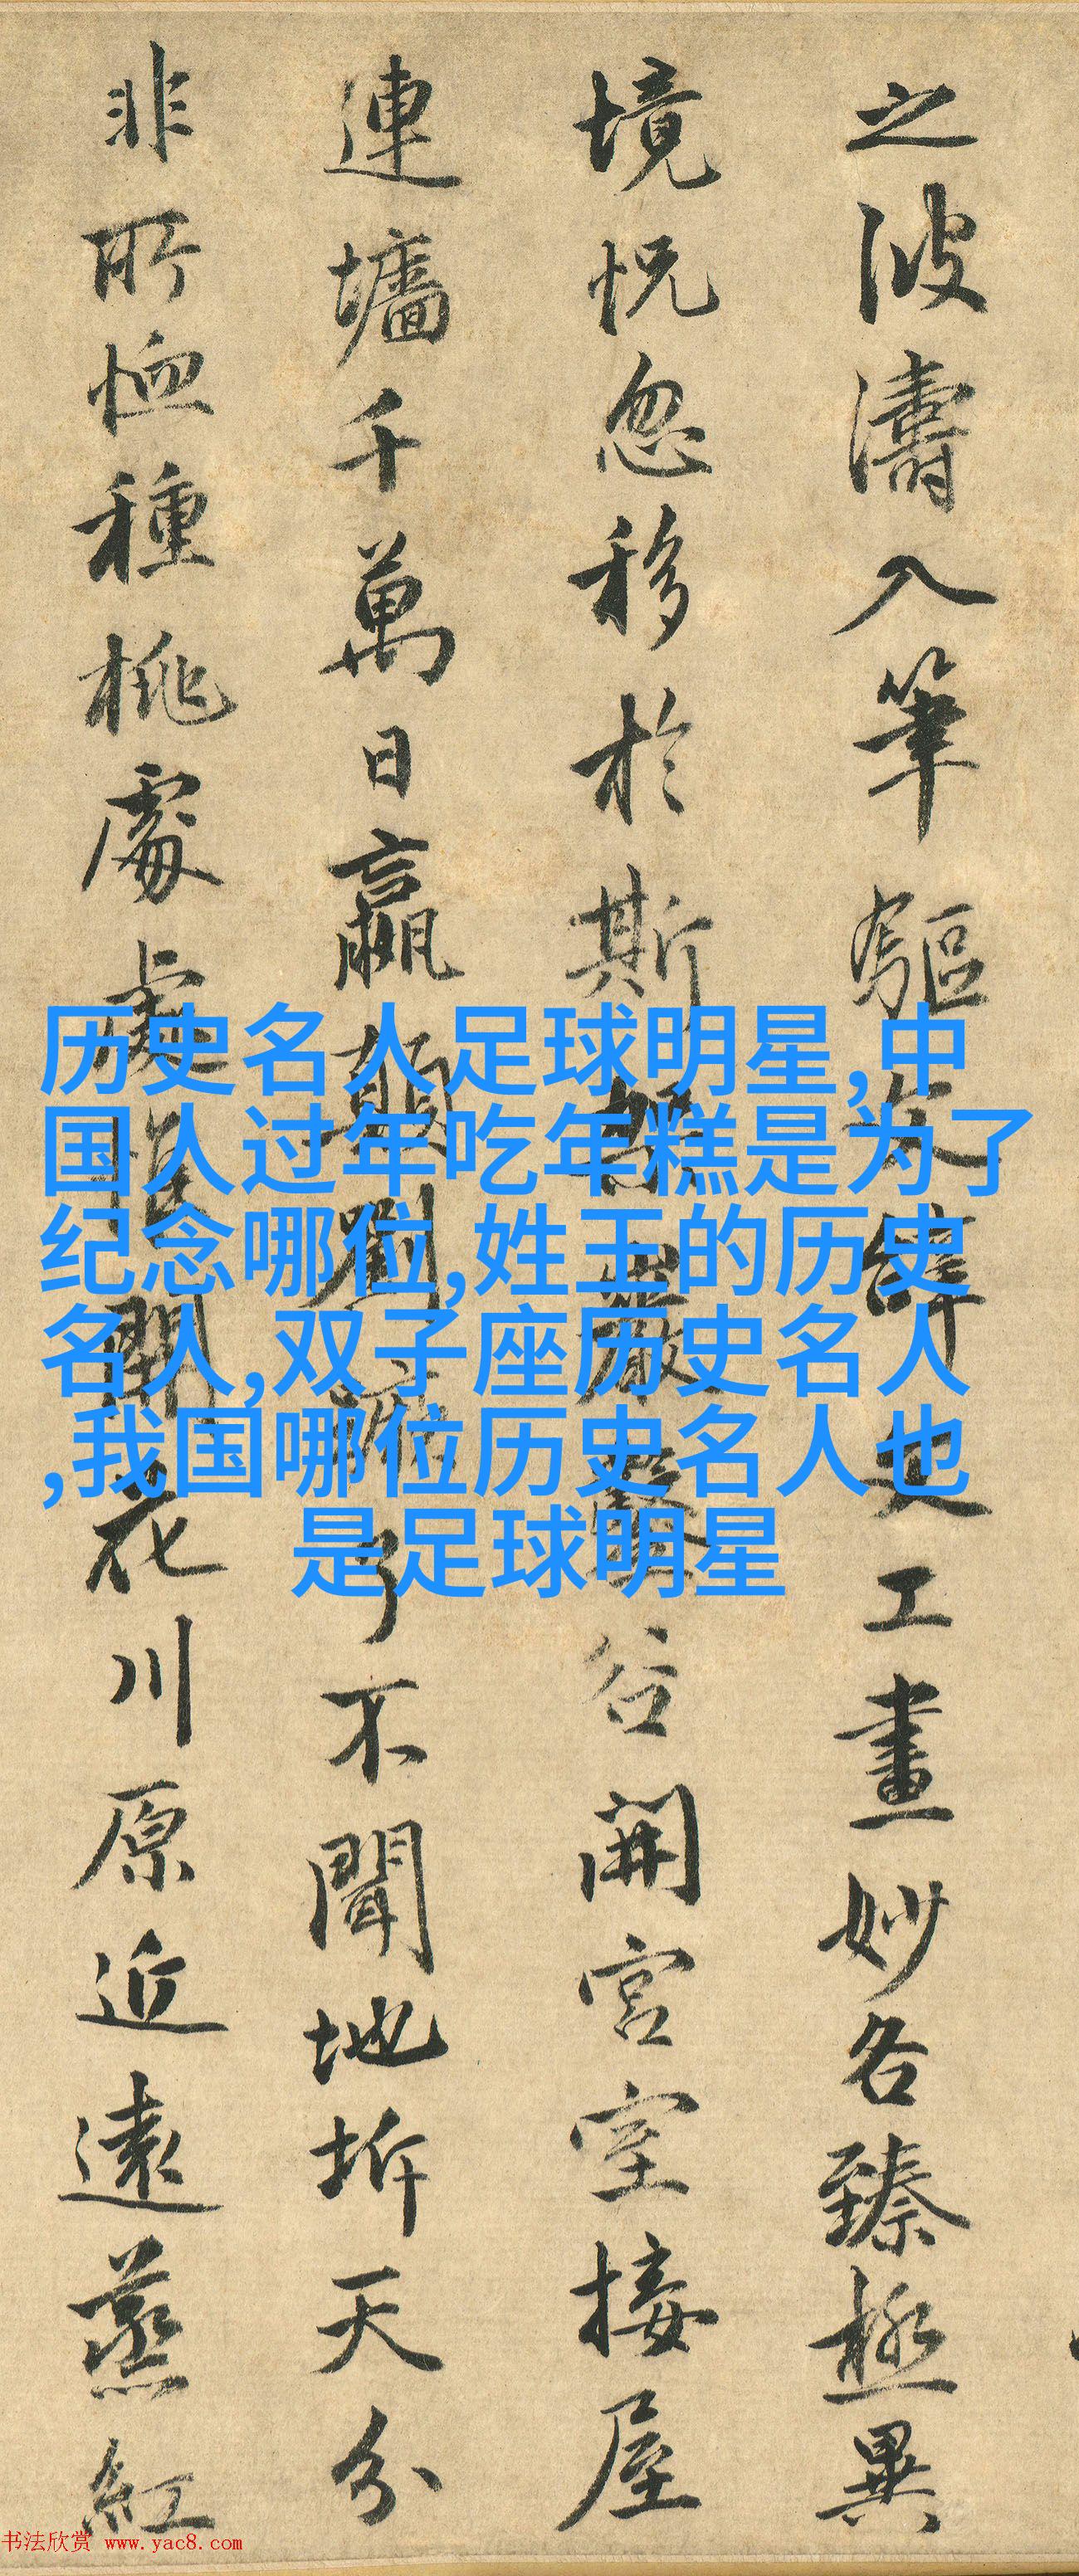 之波濤入筆驅文辤文工畫妙各臻極異
境怳忽移於斯架巖鑿谷開宮室接屋
連墻千萬日嬴顛劉蹶了不聞地坼天分
非所恤種桃處處惟開花川原近遠蒸紅
历史名人足球明星,中
国人过年吃年糕是为了
纪念哪位,姓王的历史
名人,双子座历史名人
,我国哪位历史名人也
是足球明星
书法欣赏 www.yac8.com